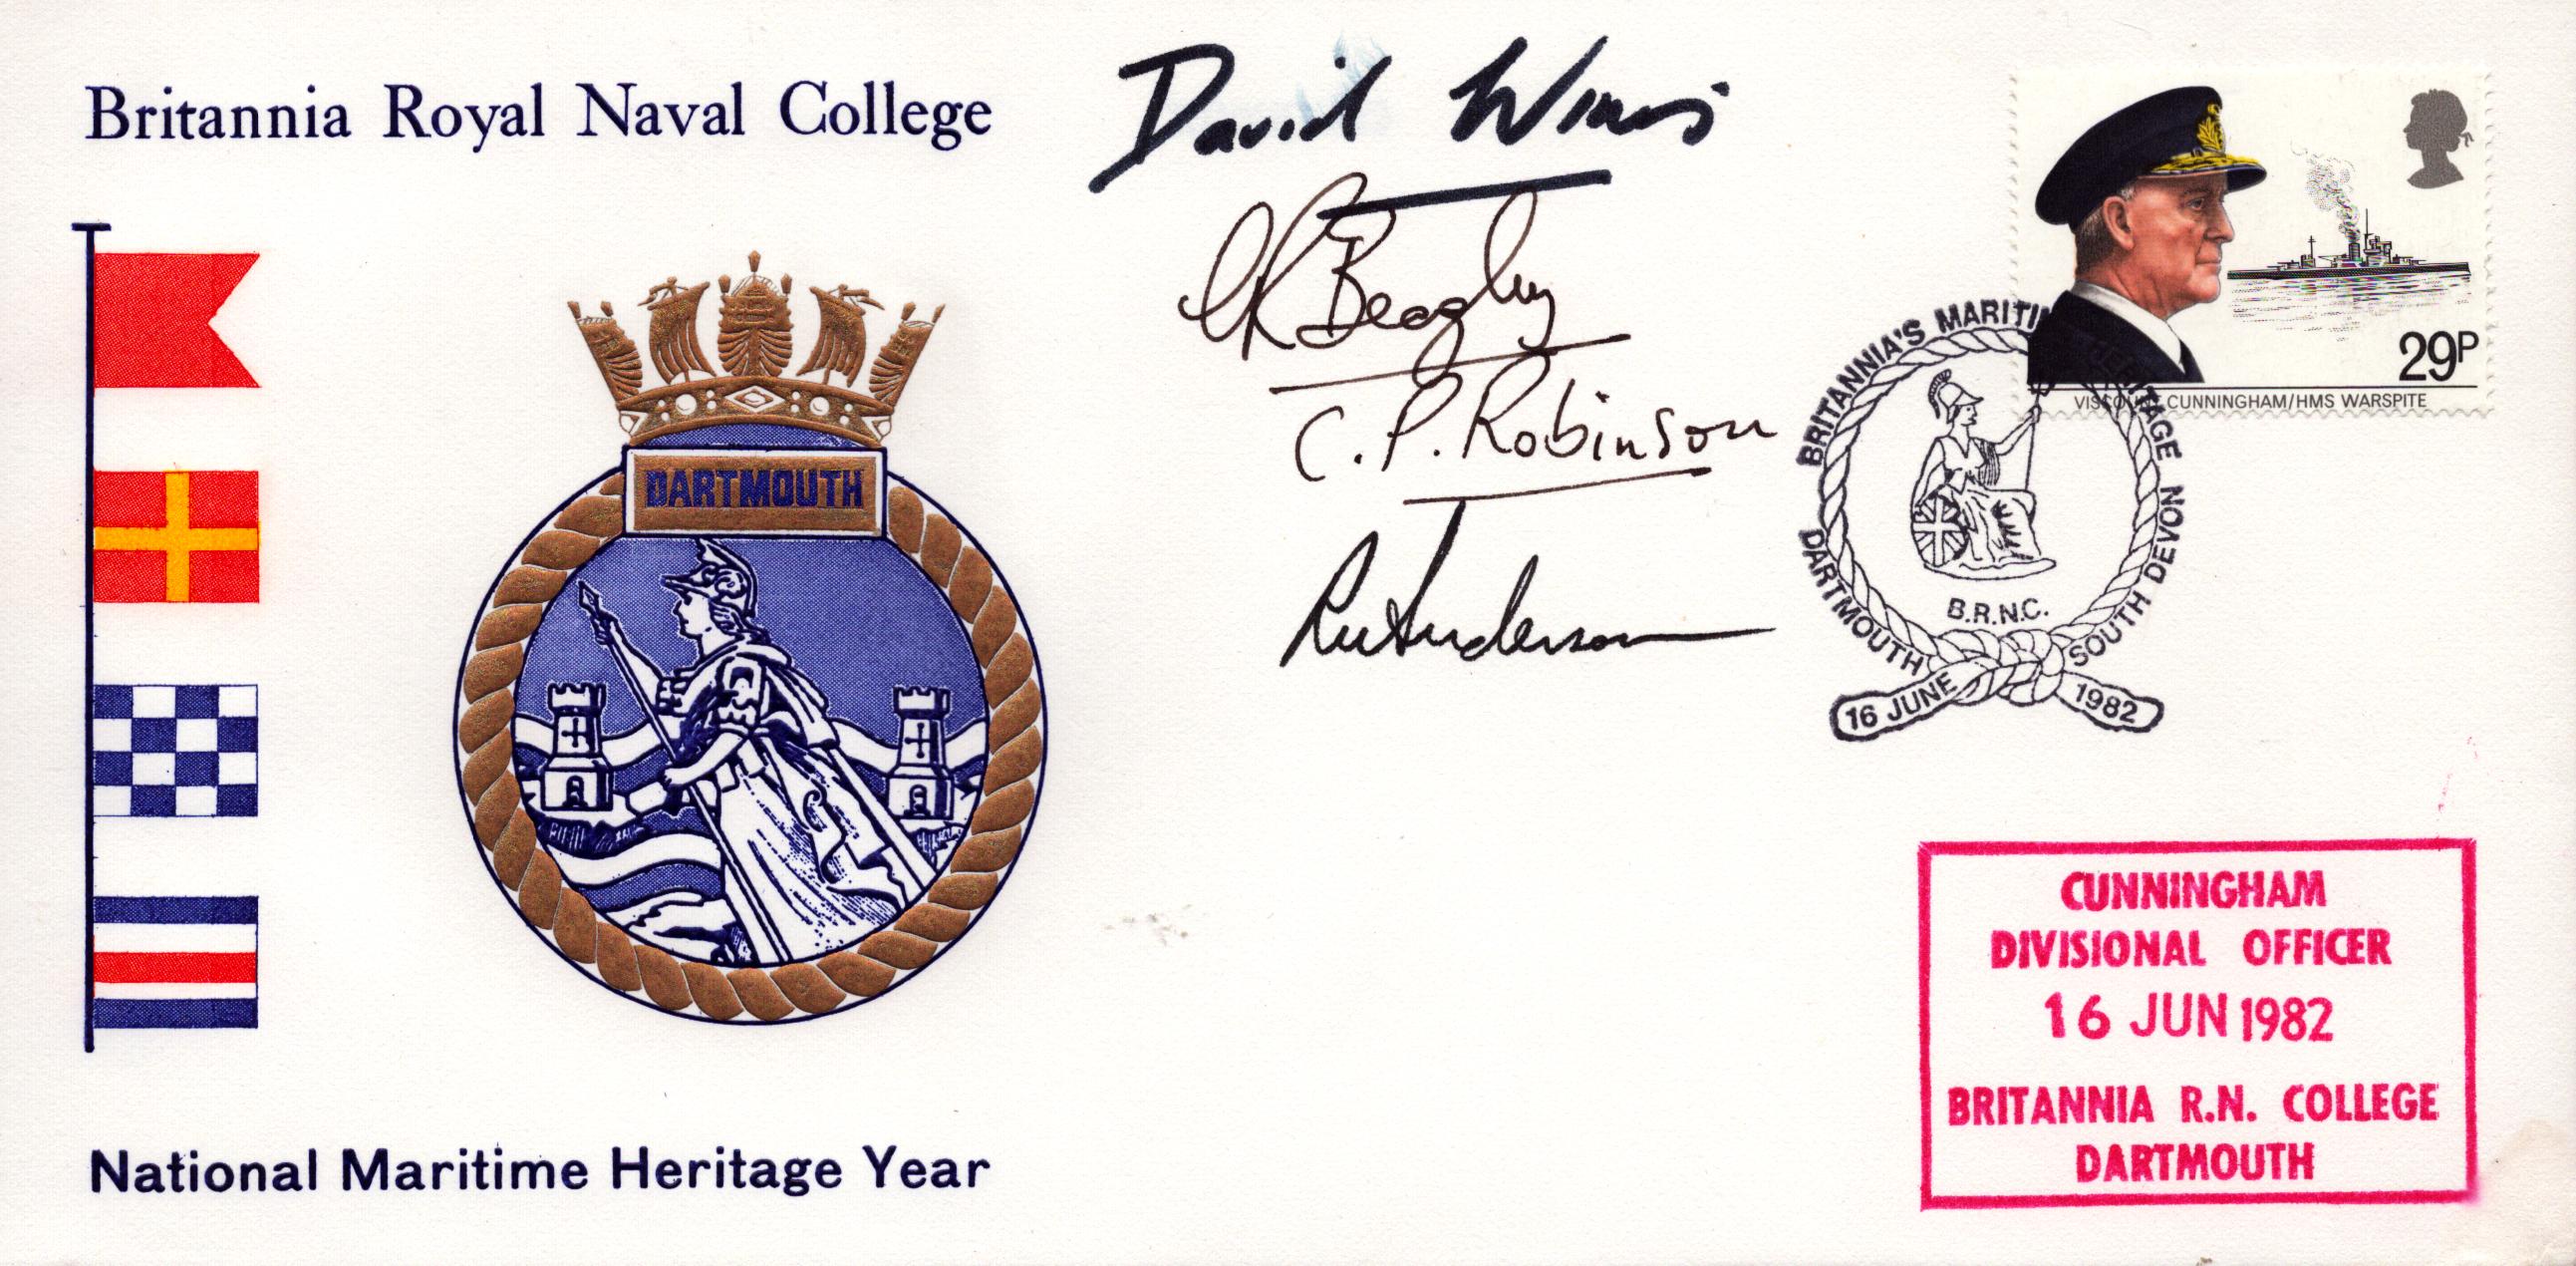 Britannia Royal Naval College
DARTMOUTH
National Maritime Heritage Year
David
C. P. Robinson
Anderson
29P
VISCOUNT CUNNINGHAM/HMS WARSPITE
BRITANNIA'S MARITIME HERITAGE
DARTMOUTH SOUTH DEVON
B.R.N.C.
16 JUNE 1982
CUNNINGHAM
DIVISIONAL OFFICER
16 JUN 1982
BRITANNIA R.N. COLLEGE
DARTMOUTH